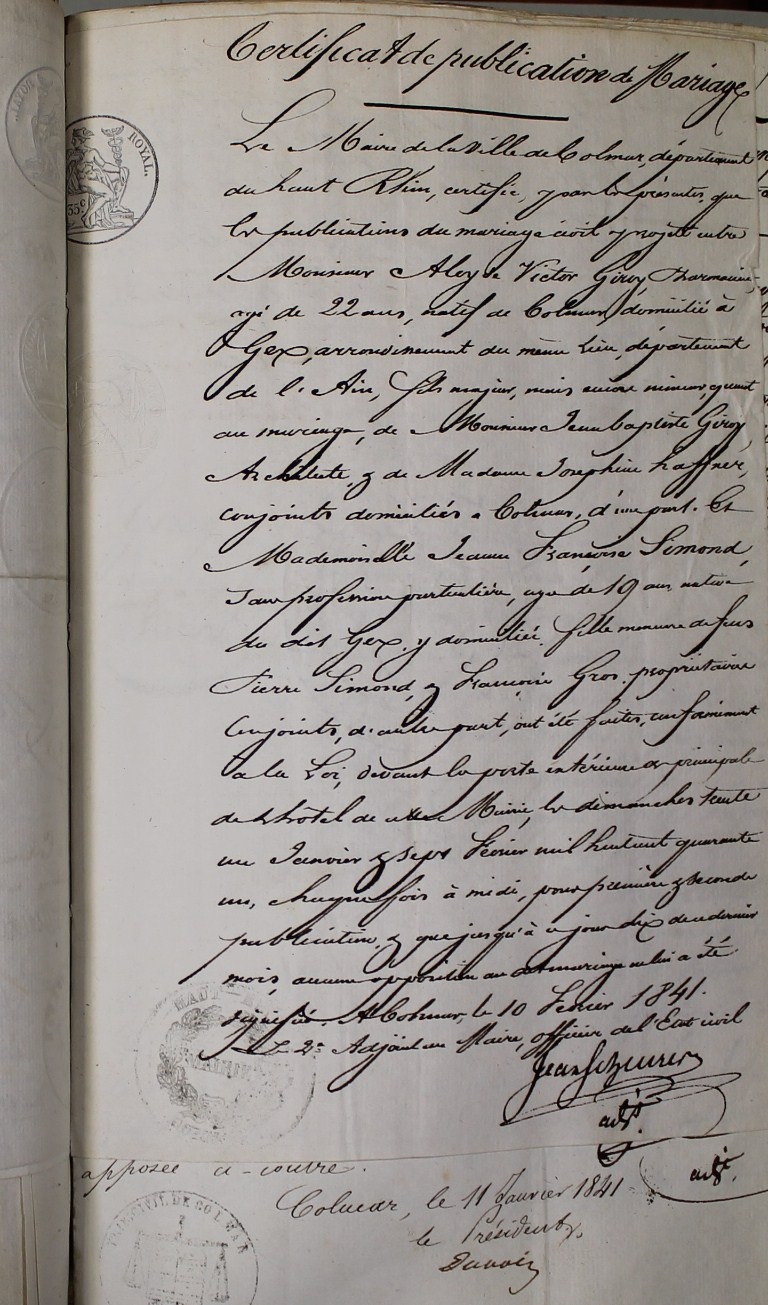 Certificat de publication de Mariage
ROYAL.
Le Maire de la Ville de Colmar, département
du haut Rhin, certifie, par les présentes, que
les publications du mariage civil projeté entre
Monsieur Aloyse Victor Giroy, Pharmacien,
agé de 22 ans, natif de Colmar, domicilié à
Gex, arrondissement du même lieu, département
de l'Ain, fils majeur, mais encore mineur, quant
au mariage, de Monsieur Jean baptiste Giroy,
Architecte, & de Madame Joséphine haffner,
conjoints domiciliés a Colmar, d'une part. Et
Mademoiselle Jeanne Françoise Simond,
sans profession particulière, agée de 19 ans, native
du dit Gex, y domiciliée, fille mineure de feus
Pierre Simond, & Françoise Gros, propriétaires
Conjoints, d'autre part, ont été faites, conformément
à la Loi, devant la porte intérieure & principale
de l'hôtel de cette Mairie, les dimanches trente
un Janvier & sept Février mil huit cent quarante
un, chaque fois à midi, pour première & seconde
publication, & que jusqu'à ce jour dix de ce dernier
mois, aucune opposition au dit mariage ne lui a été
signifiée. A Colmar, le 10 Février 1841.
Le 2e Adjoint au Maire, officier de l'Etat civil
adjt.
apposée ci-contre.
adjt.
Colmar, le 11 Janvier 1841
le Président,
CIVIL DE COLMAR